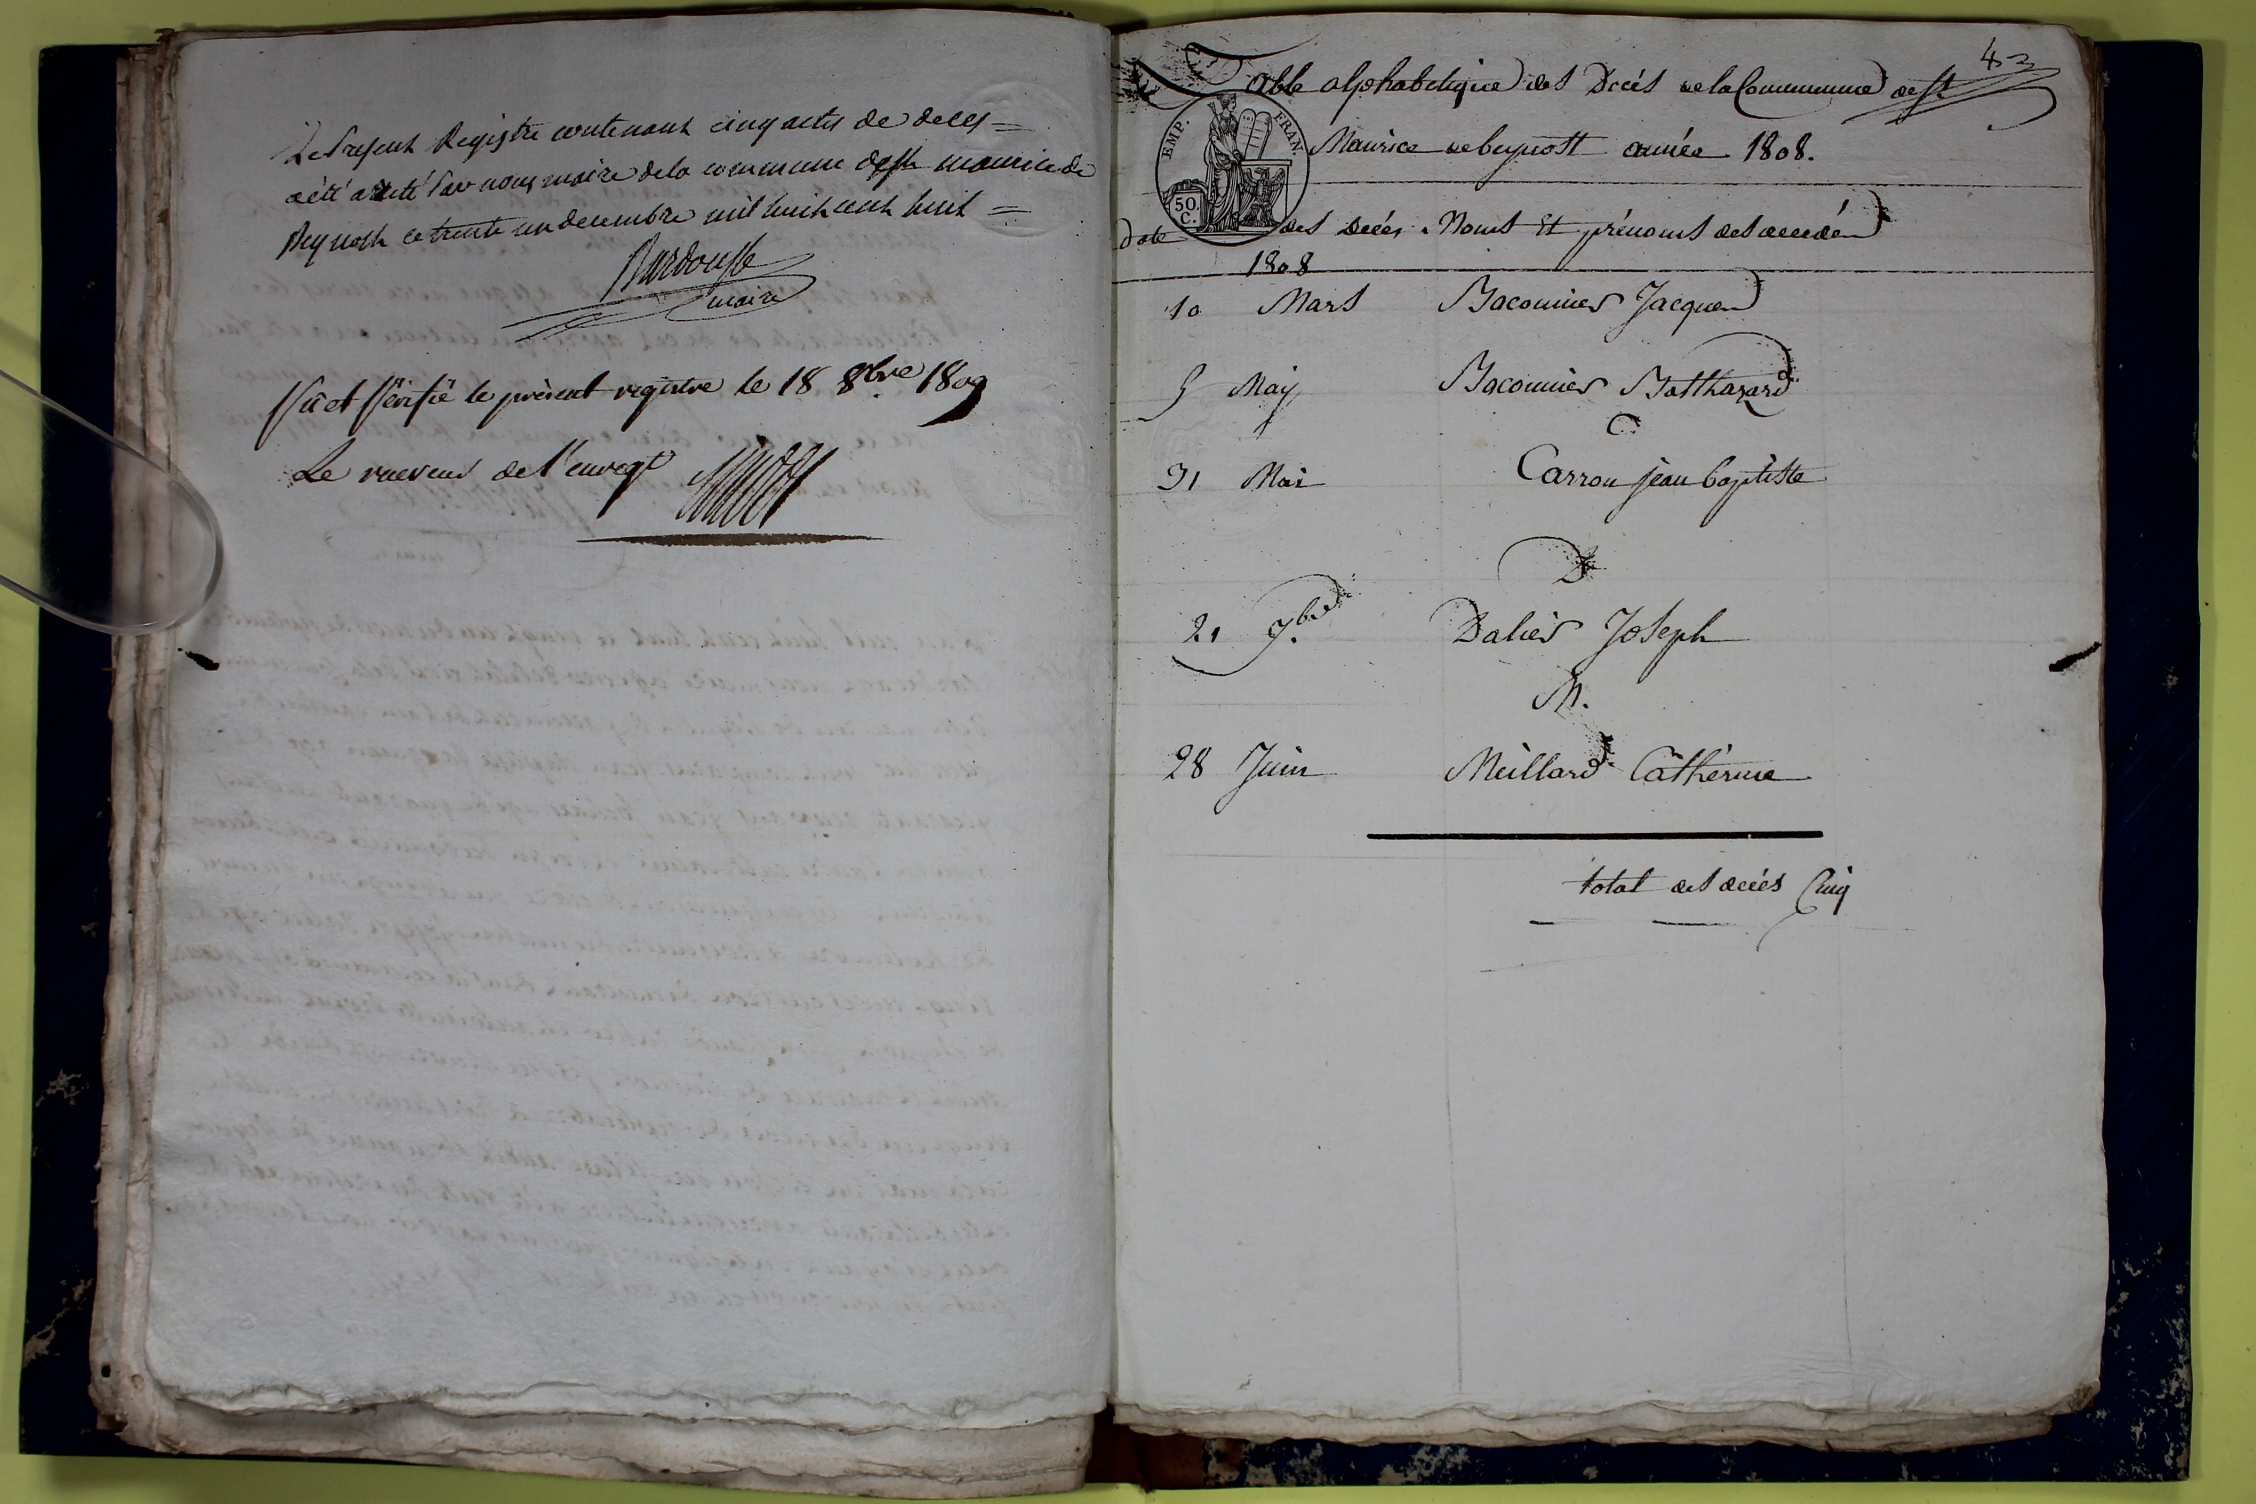 Le present Registre contenant cinq actes de deces =
a été arreté par nous maire de la commune de st maurice de
Beynost ce trente un decembre mil huit cent huit =
maire
Vû et Vérifié le présent registre le 18 8bre 1809
Le receveur de l'enregt
42
Table alphabetique des Décés de la Commune de St
Maurice de beynost année 1808.
EMP. FRAN.
50. C.
Date des Décés. Noms Et prénoms des décédés
1808
10 Mars Baconnier Jacques
5 May Baconnier Balthazard
C
31 Mai Carron jean baptiste
D
21 7.bre Daliès Joseph
M.
28 Juin Meillard Câthérine
total des décés Cinq